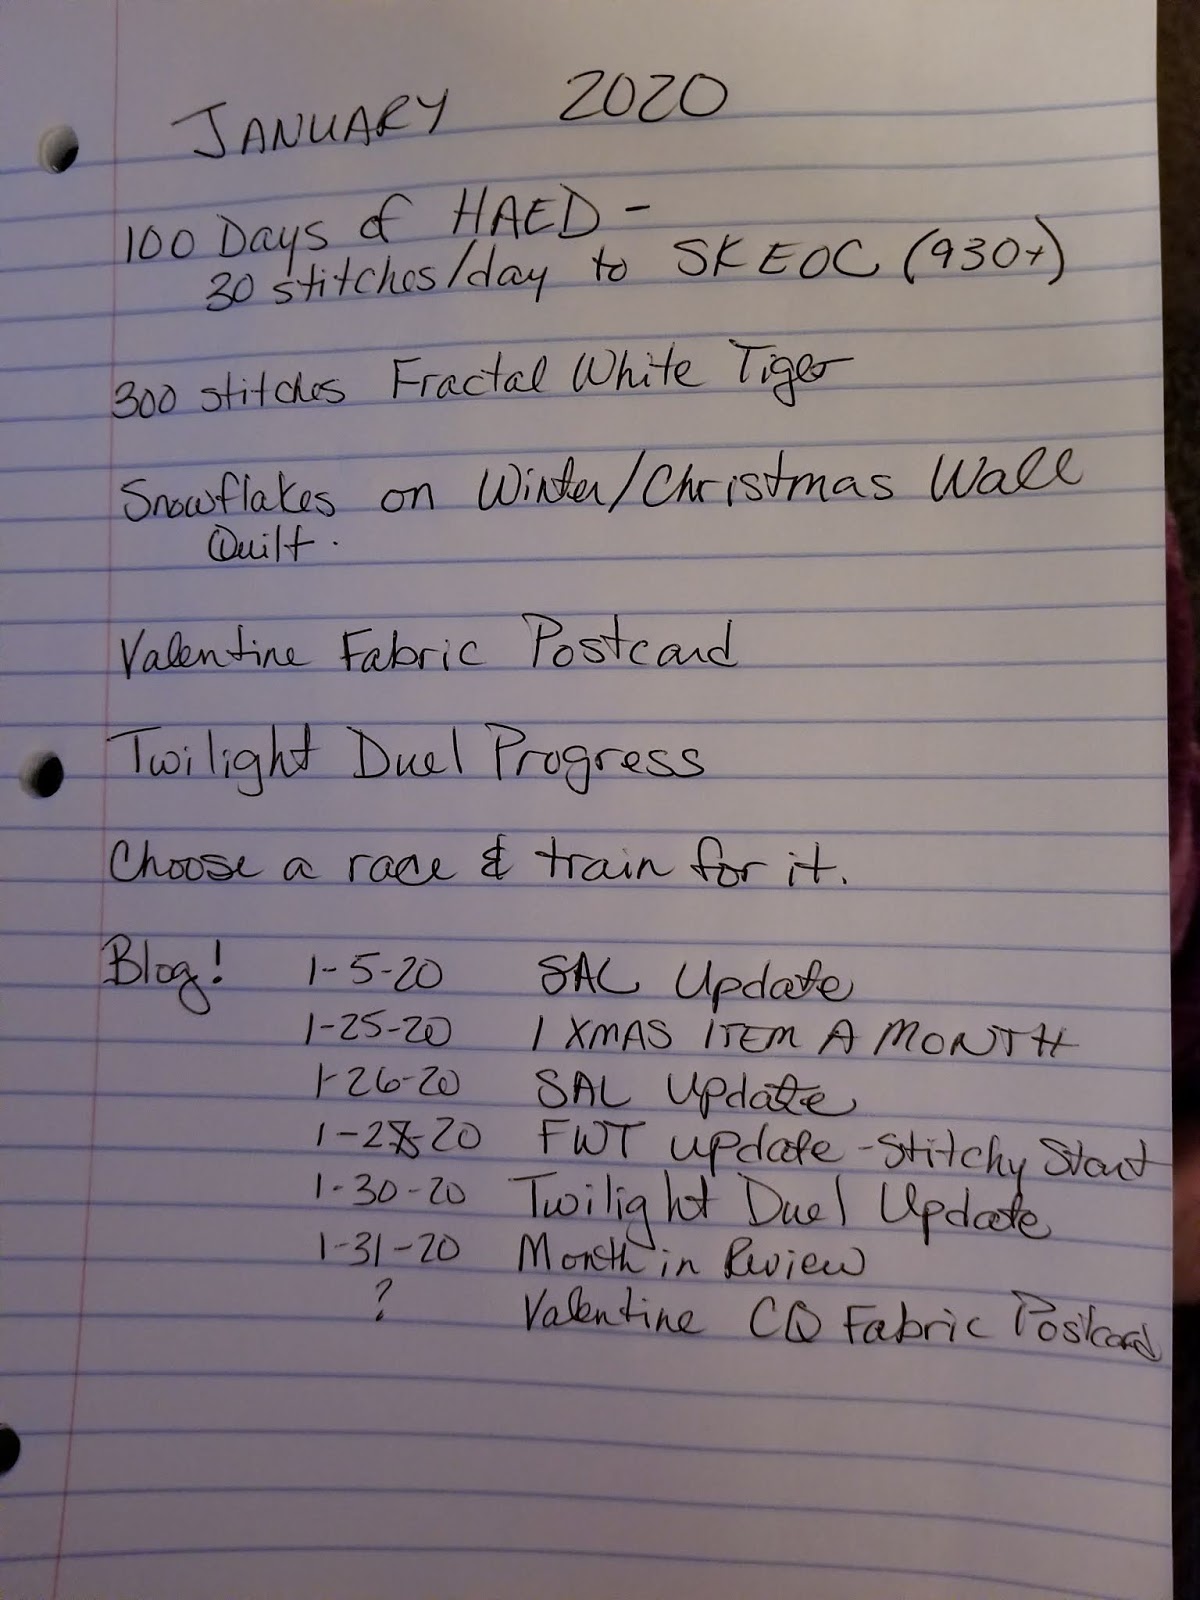 JANUARY 2020
100 Days of HAED -
30 stitches/day to SKEOC (930+)
300 stitches Fractal White Tiger
Snowflakes on Winter/Christmas Wall
Quilt.
Valentine Fabric Postcard
Twilight Duel Progress
Choose a race & train for it.
Blog! 1-5-20 SAL Update
1-25-20 1 XMAS ITEM A MONTH
1-26-20 SAL Update
1-28-20 FWT update - Stitchy Start
1-30-20 Twilight Duel Update
1-31-20 Month in Review
? Valentine CQ Fabric Postcard